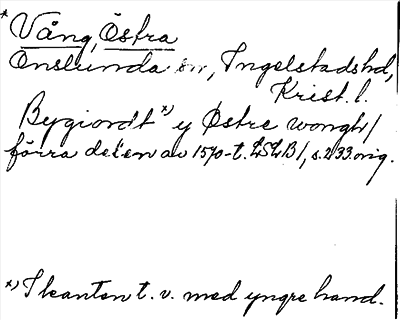 * Vång, Östra
Onslunda sn, Ingelstadshd,
Krist. l.
Bygiordt *) y Østre wongh/
förra delen av 1570-t. LSLB/, s. 233. orig.
*) I kanten t. v. med yngre hand.